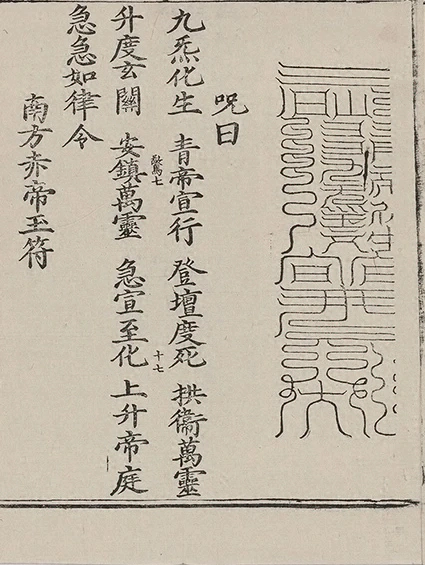 呪曰
九炁化生 青帝宣行 登壇度死 拱衞萬靈
升度玄關 安鎮萬靈 急宣至化 上升帝庭
急急如律令
南方赤帝玉符